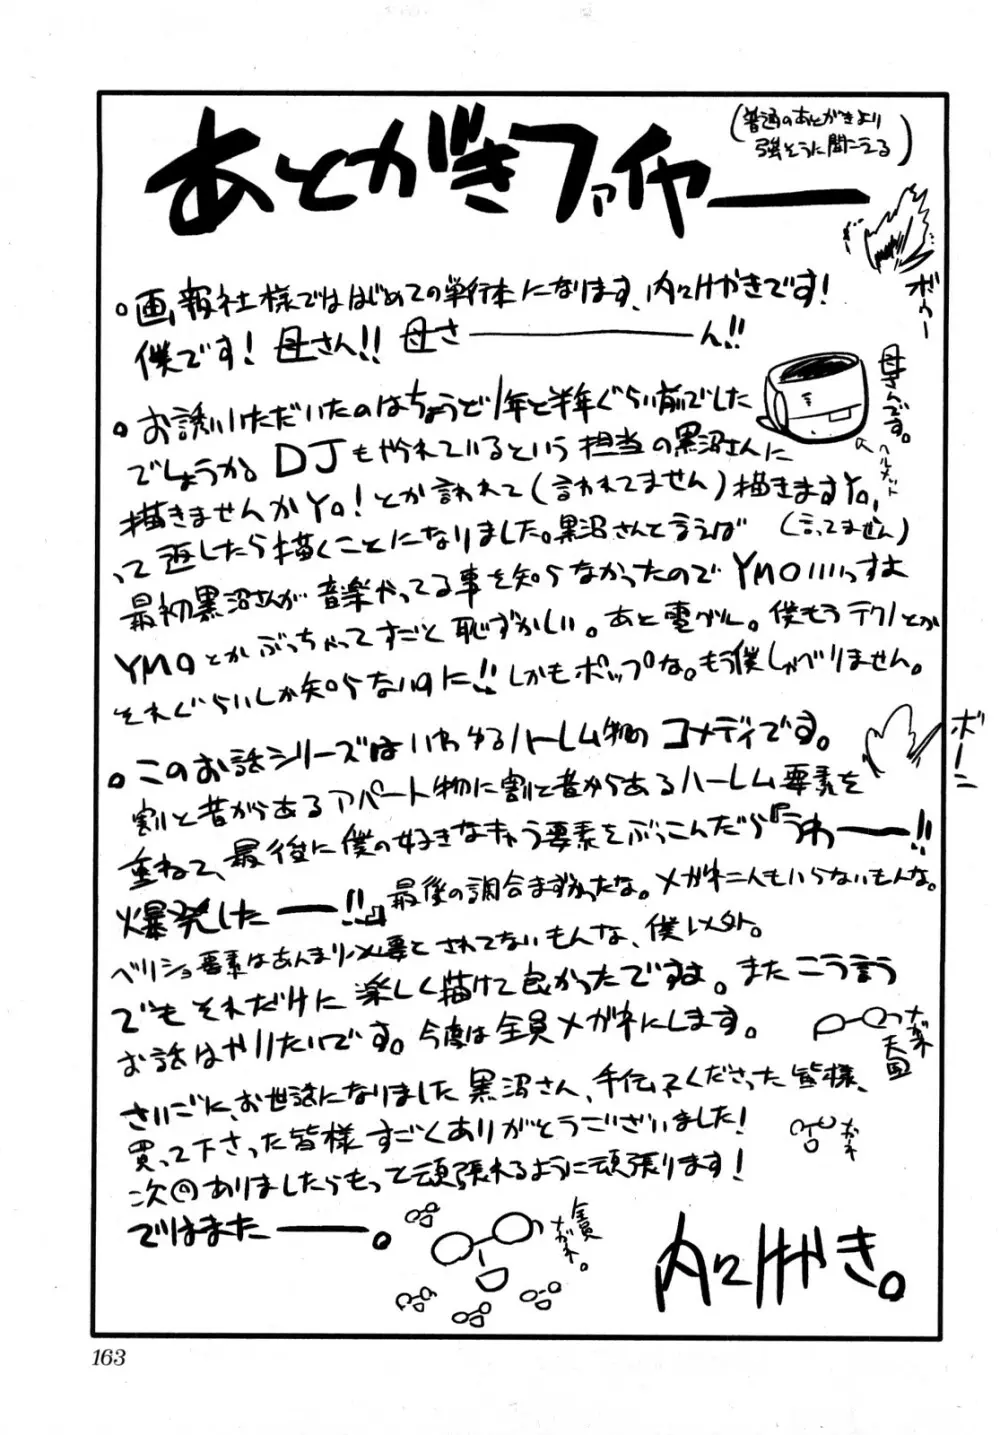 あとがきファイヤー
(普通のあとがきより
強そうに聞こえる)
ボゥー
。画報社様でははじめての単行本になります、内々けやきです!
僕です! 母さん!! 母さ―――ん!!
母さんです。
ヘルメット
。お誘いいただいたのはちょうど1年と半年ぐらい前でした
でしょうか。DJもやられているという担当の黒沼さんに
描きませんかYo!とか言われて(言われてません)描きますYo,
って返したら描くことになりました。黒沼さんと言えば (言ってません)
最初黒沼さんが音楽やってる事を知らなかったのでYMOいいっすよ
YMOとかぶっちゃってすごく恥ずかしい。あと電グル。僕もうテクノとか
それぐらいしか知らないのに!!しかもポップな。もう僕しゃべりません。
。このお話シリーズはいわゆるハーレム物のコメディです。
ボーン
割と昔からあるアパート物に割と昔からあるハーレム要素を
重ねて、最後に僕の好きなキョう要素をぶっこんだら『うわー!!
爆発したー!!』最後の調合まずかったな。メガネ二人もいらないもんな。
ベリショ要素はあんまり必要とされてないもんな、僕以外。
でもそれだけに楽しく描けて良かったですよ。またこう言う
お話はやりたいです。今度は全員メガネにします。
メガネ
天国
さいごに、お世話になりました黒沼さん、手伝ってくださった皆様、
買って下さった皆様すごくありがとうございました!
メガネ
次回ありましたらもっと頑張れるように頑張ります!
ではまたー。
全員
メガネ。
内々けやき。
163